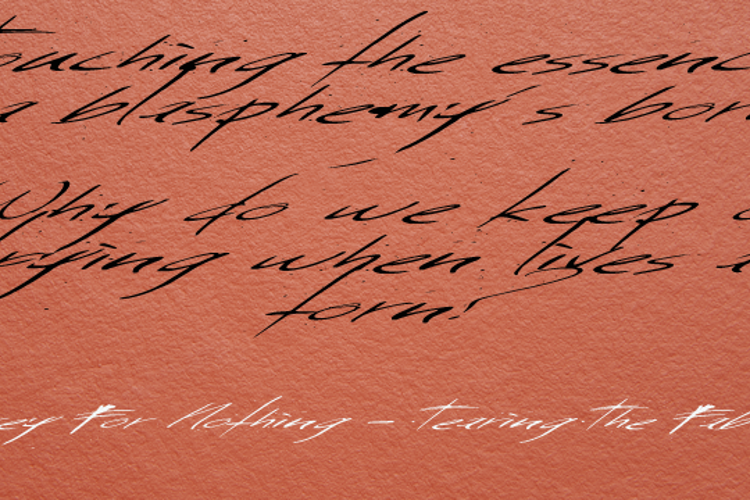 ouching the essenc
a blasphemy's bor
Why do we keep
rying when lives a
torn?
ey For Nothing - Tearing The Fab